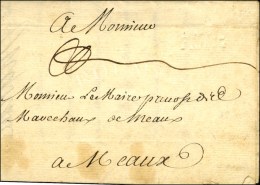 A Monsieur
Monsieur Le Maire prevost des
Marechaux de Meaux
a Meaux